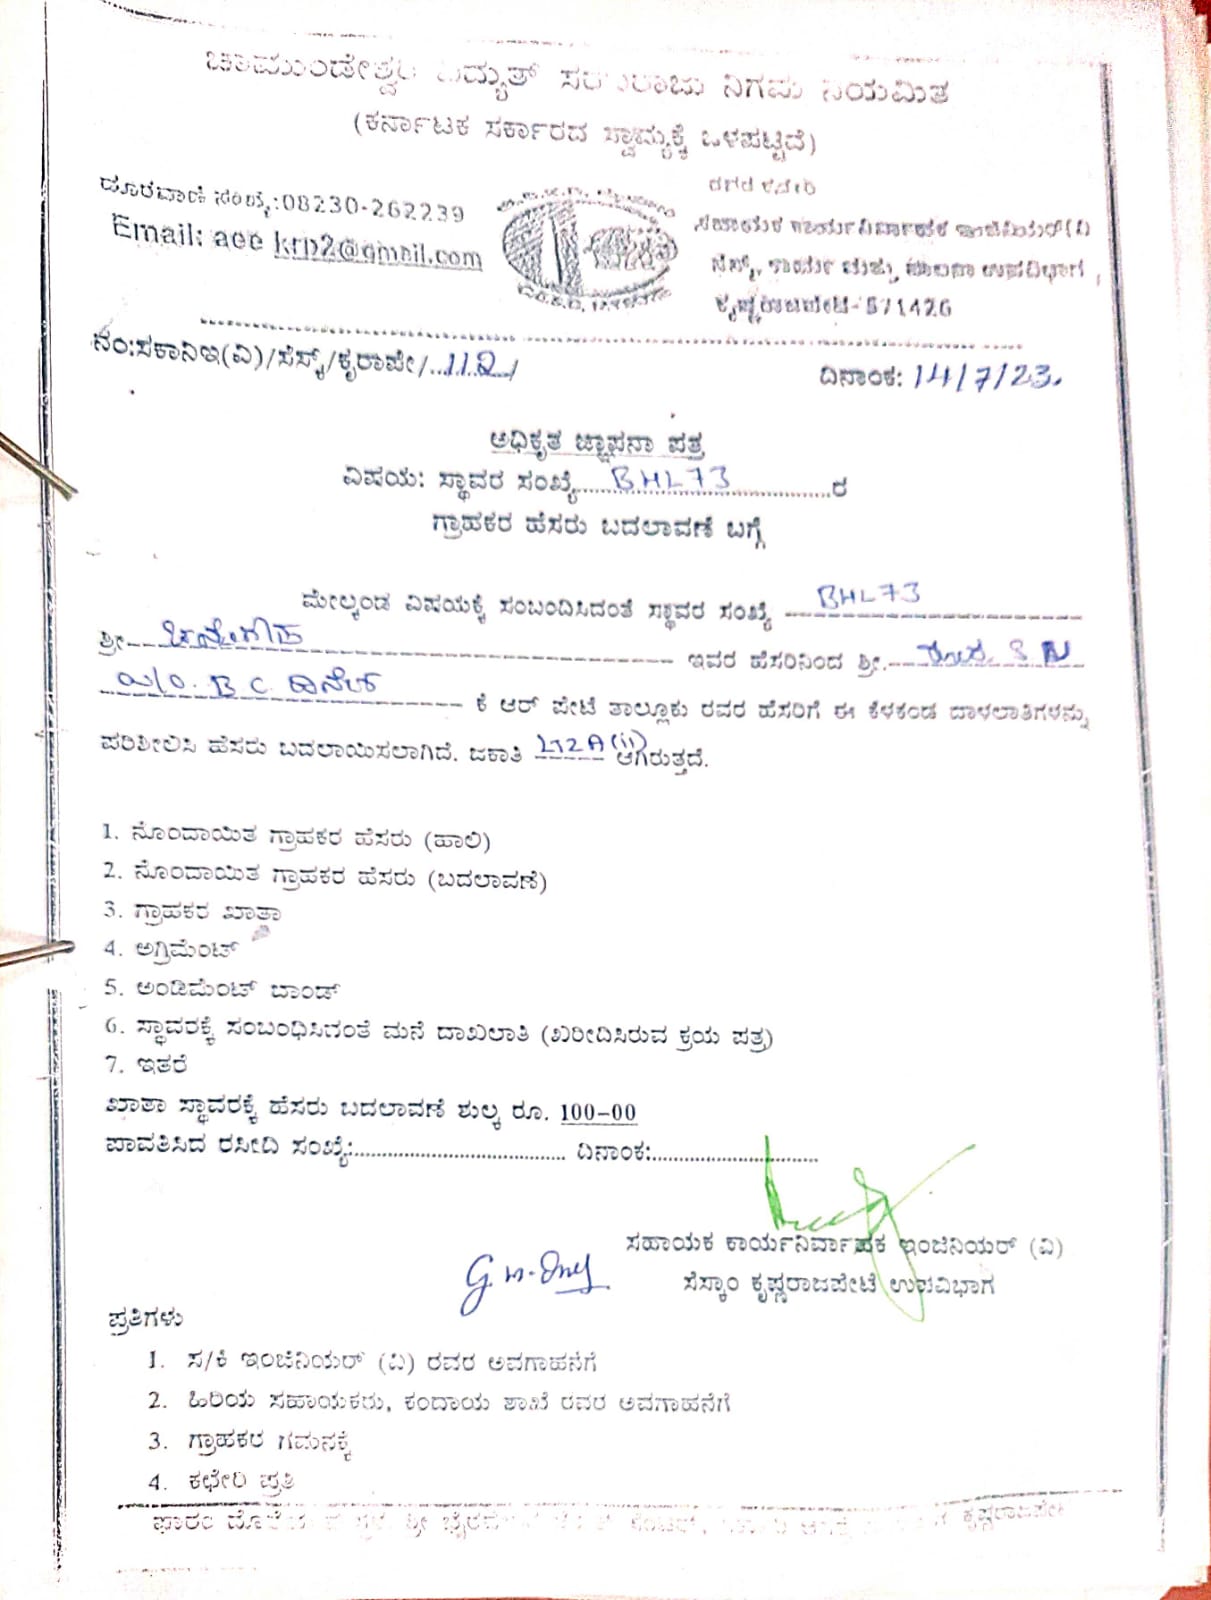 ಚಾಮುಂಡೇಶ್ವರಿ ವಿದ್ಯುತ್ ಸರಬರಾಜು ನಿಗಮ ನಿಯಮಿತ
(ಕರ್ನಾಟಕ ಸರ್ಕಾರದ ಸ್ವಾಮ್ಯಕ್ಕೆ ಒಳಪಟ್ಟಿದೆ)
ದೂರವಾಣಿ ಸಂಖ್ಯೆ:08230-262239
Email: aee krp2@gmail.com
ಸಹಾಯಕ ಕಾರ್ಯನಿರ್ವಾಹಕ ಇಂಜಿನಿಯರ್(ವಿ
ಸೆಸ್ಕ್, ಕಾರ್ಯ ಮತ್ತು ಪಾಲನಾ ಉಪವಿಭಾಗ,
ಕೃಷ್ಣರಾಜಪೇಟೆ-571426
ನಂ:ಸಕಾನಿಇ(ವಿ)/ಸೆಸ್ಕ್/ಕೃರಾಪೇ/...112../
ದಿನಾಂಕ: 14/7/23.
ಅಧಿಕೃತ ಜ್ಞಾಪನಾ ಪತ್ರ
ವಿಷಯ: ಸ್ಥಾವರ ಸಂಖ್ಯೆ.....BHL73..............ರ
ಗ್ರಾಹಕರ ಹೆಸರು ಬದಲಾವಣೆ ಬಗ್ಗೆ
ಮೇಲ್ಕಂಡ ವಿಷಯಕ್ಕೆ ಸಂಬಂದಿಸಿದಂತೆ ಸ್ಥಾವರ ಸಂಖ್ಯೆ BHL73
ಶ್ರೀ ಇವರ ಹೆಸರಿನಿಂದ ಶ್ರೀ. S N
B C ಕೆ ಆರ್ ಪೇಟೆ ತಾಲ್ಲೂಕು ರವರ ಹೆಸರಿಗೆ ಈ ಕೆಳಕಂಡ ದಾಳಲಾತಿಗಳನ್ನು
ಪರಿಶೀಲಿಸಿ ಹೆಸರು ಬದಲಾಯಿಸಲಾಗಿದೆ. ಜಕಾತಿ LT2A(ii) ಆಗಿರುತ್ತದೆ.
1. ನೊಂದಾಯಿತ ಗ್ರಾಹಕರ ಹೆಸರು (ಹಾಲಿ)
2. ನೊಂದಾಯಿತ ಗ್ರಾಹಕರ ಹೆಸರು (ಬದಲಾವಣೆ)
3. ಗ್ರಾಹಕರ ಖಾತಾ
4. ಅಗ್ರಿಮೆಂಟ್
5. ಅಂಡಿಮೆಂಟ್ ಬಾಂಡ್
6. ಸ್ಥಾವರಕ್ಕೆ ಸಂಬಂಧಿಸಿದಂತೆ ಮನೆ ದಾಖಲಾತಿ (ಖರೀದಿಸಿರುವ ಕ್ರಯ ಪತ್ರ)
7. ಇತರೆ
ಖಾತಾ ಸ್ಥಾವರಕ್ಕೆ ಹೆಸರು ಬದಲಾವಣೆ ಶುಲ್ಕ ರೂ. 100-00
ಪಾವತಿಸಿದ ರಸೀದಿ ಸಂಖ್ಯೆ:................................... ದಿನಾಂಕ:...........................
ಸಹಾಯಕ ಕಾರ್ಯನಿರ್ವಾಹಕ ಇಂಜಿನಿಯರ್ (ವಿ)
ಸೆಸ್ಕಾಂ ಕೃಷ್ಣರಾಜಪೇಟೆ ಉಪವಿಭಾಗ
ಪ್ರತಿಗಳು
1. ಸ/ಕಿ ಇಂಜಿನಿಯರ್ (ವಿ) ರವರ ಅವಗಾಹನೆಗೆ
2. ಹಿರಿಯ ಸಹಾಯಕರು, ಕಂದಾಯ ಶಾಖೆ ರವರ ಅವಗಾಹನೆಗೆ
3. ಗ್ರಾಹಕರ ಗಮನಕ್ಕೆ
4. ಕಛೇರಿ ಪ್ರತಿ
ಫಾರಂ ಶ್ರೀ ಕೃಷ್ಣರಾಜಪೇಟೆ